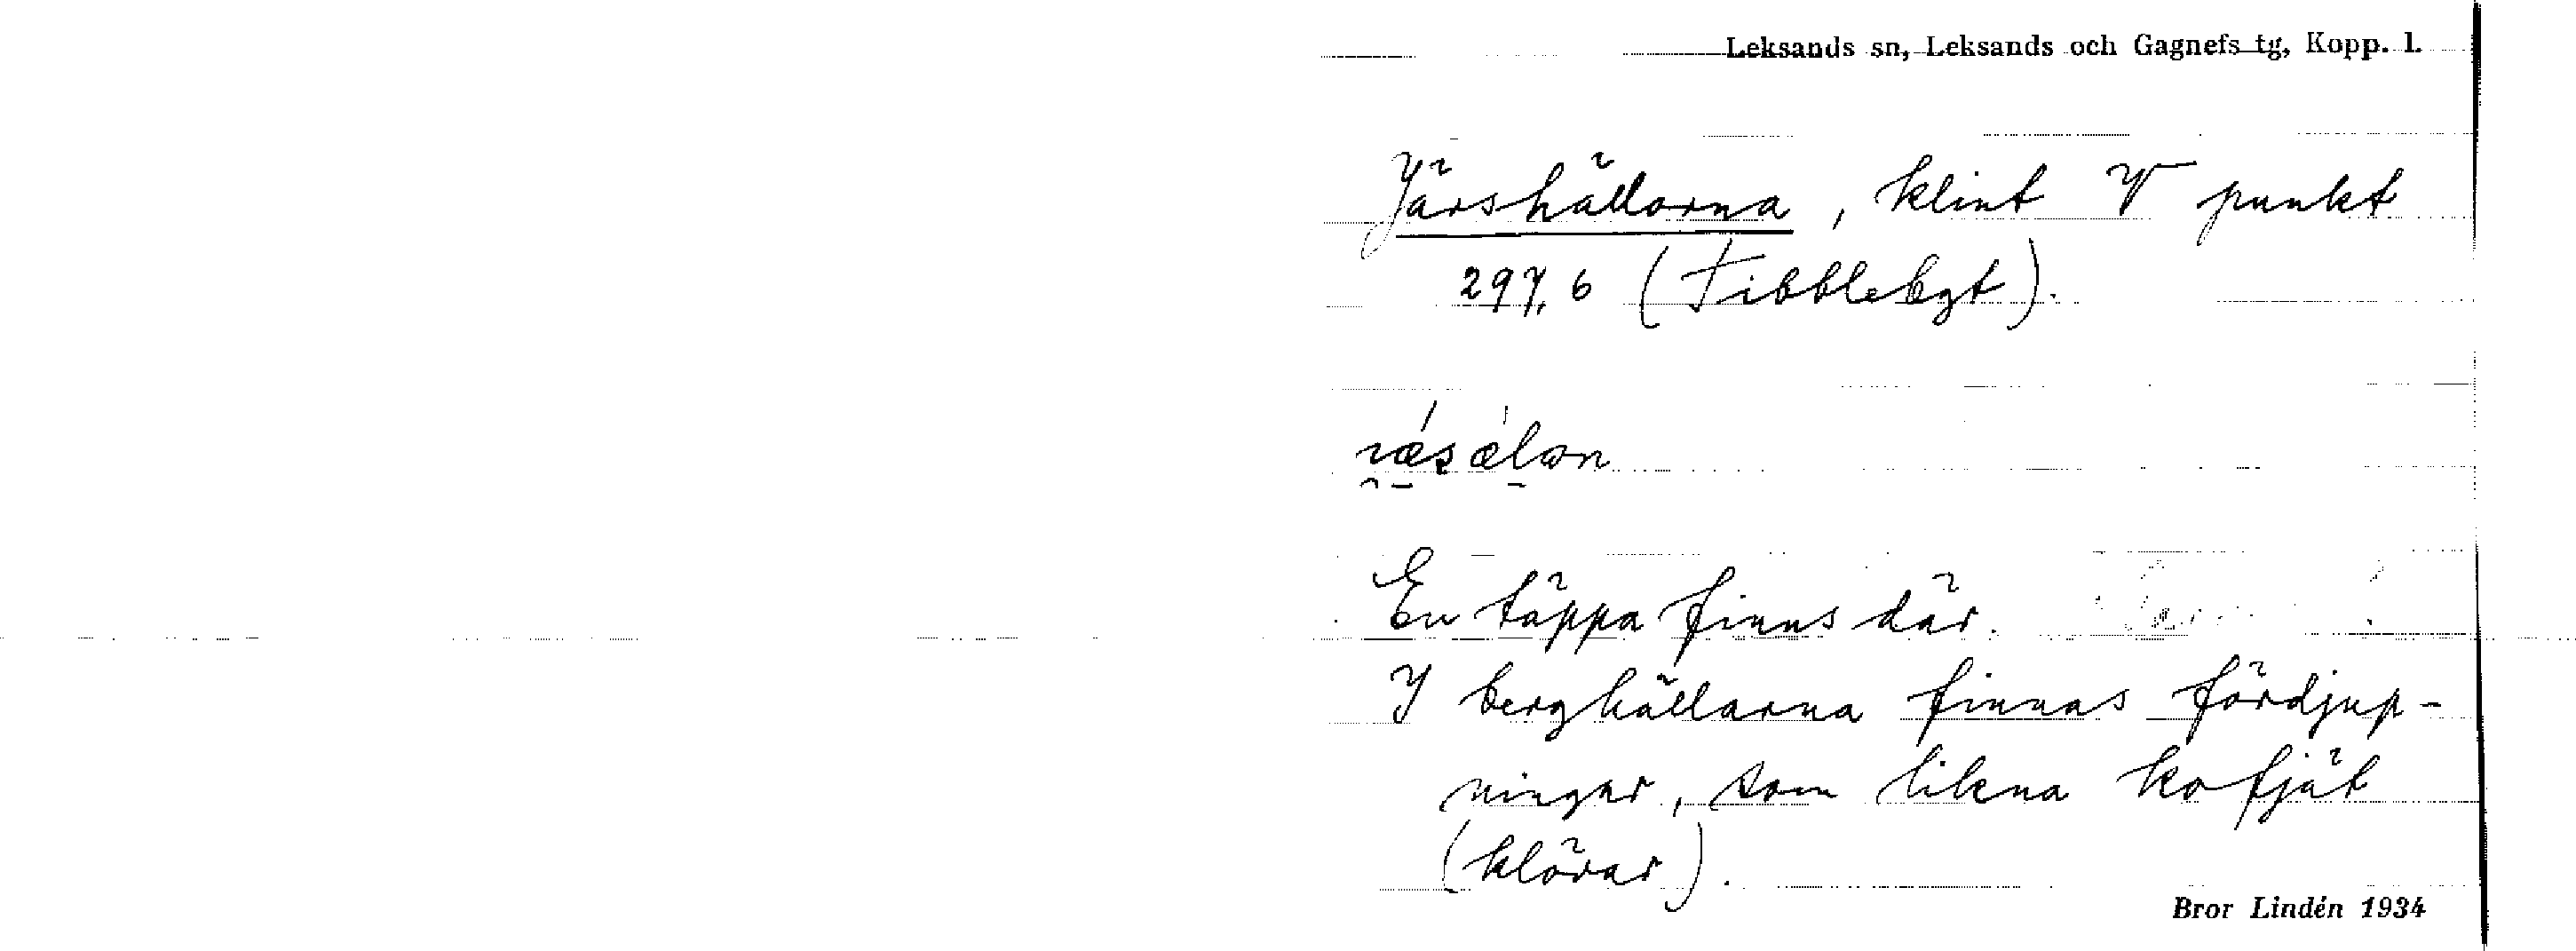 Leksands sn, Leksands och Gagnefs tg, Kopp. l.
Järshällorna, klint V punkt
297,6 (Tibblebgt).
En täppa finns där.
I berghällarna finnas fördjup-
ningar, som likna kofjät
(klövar).
Bror Lindén 1934